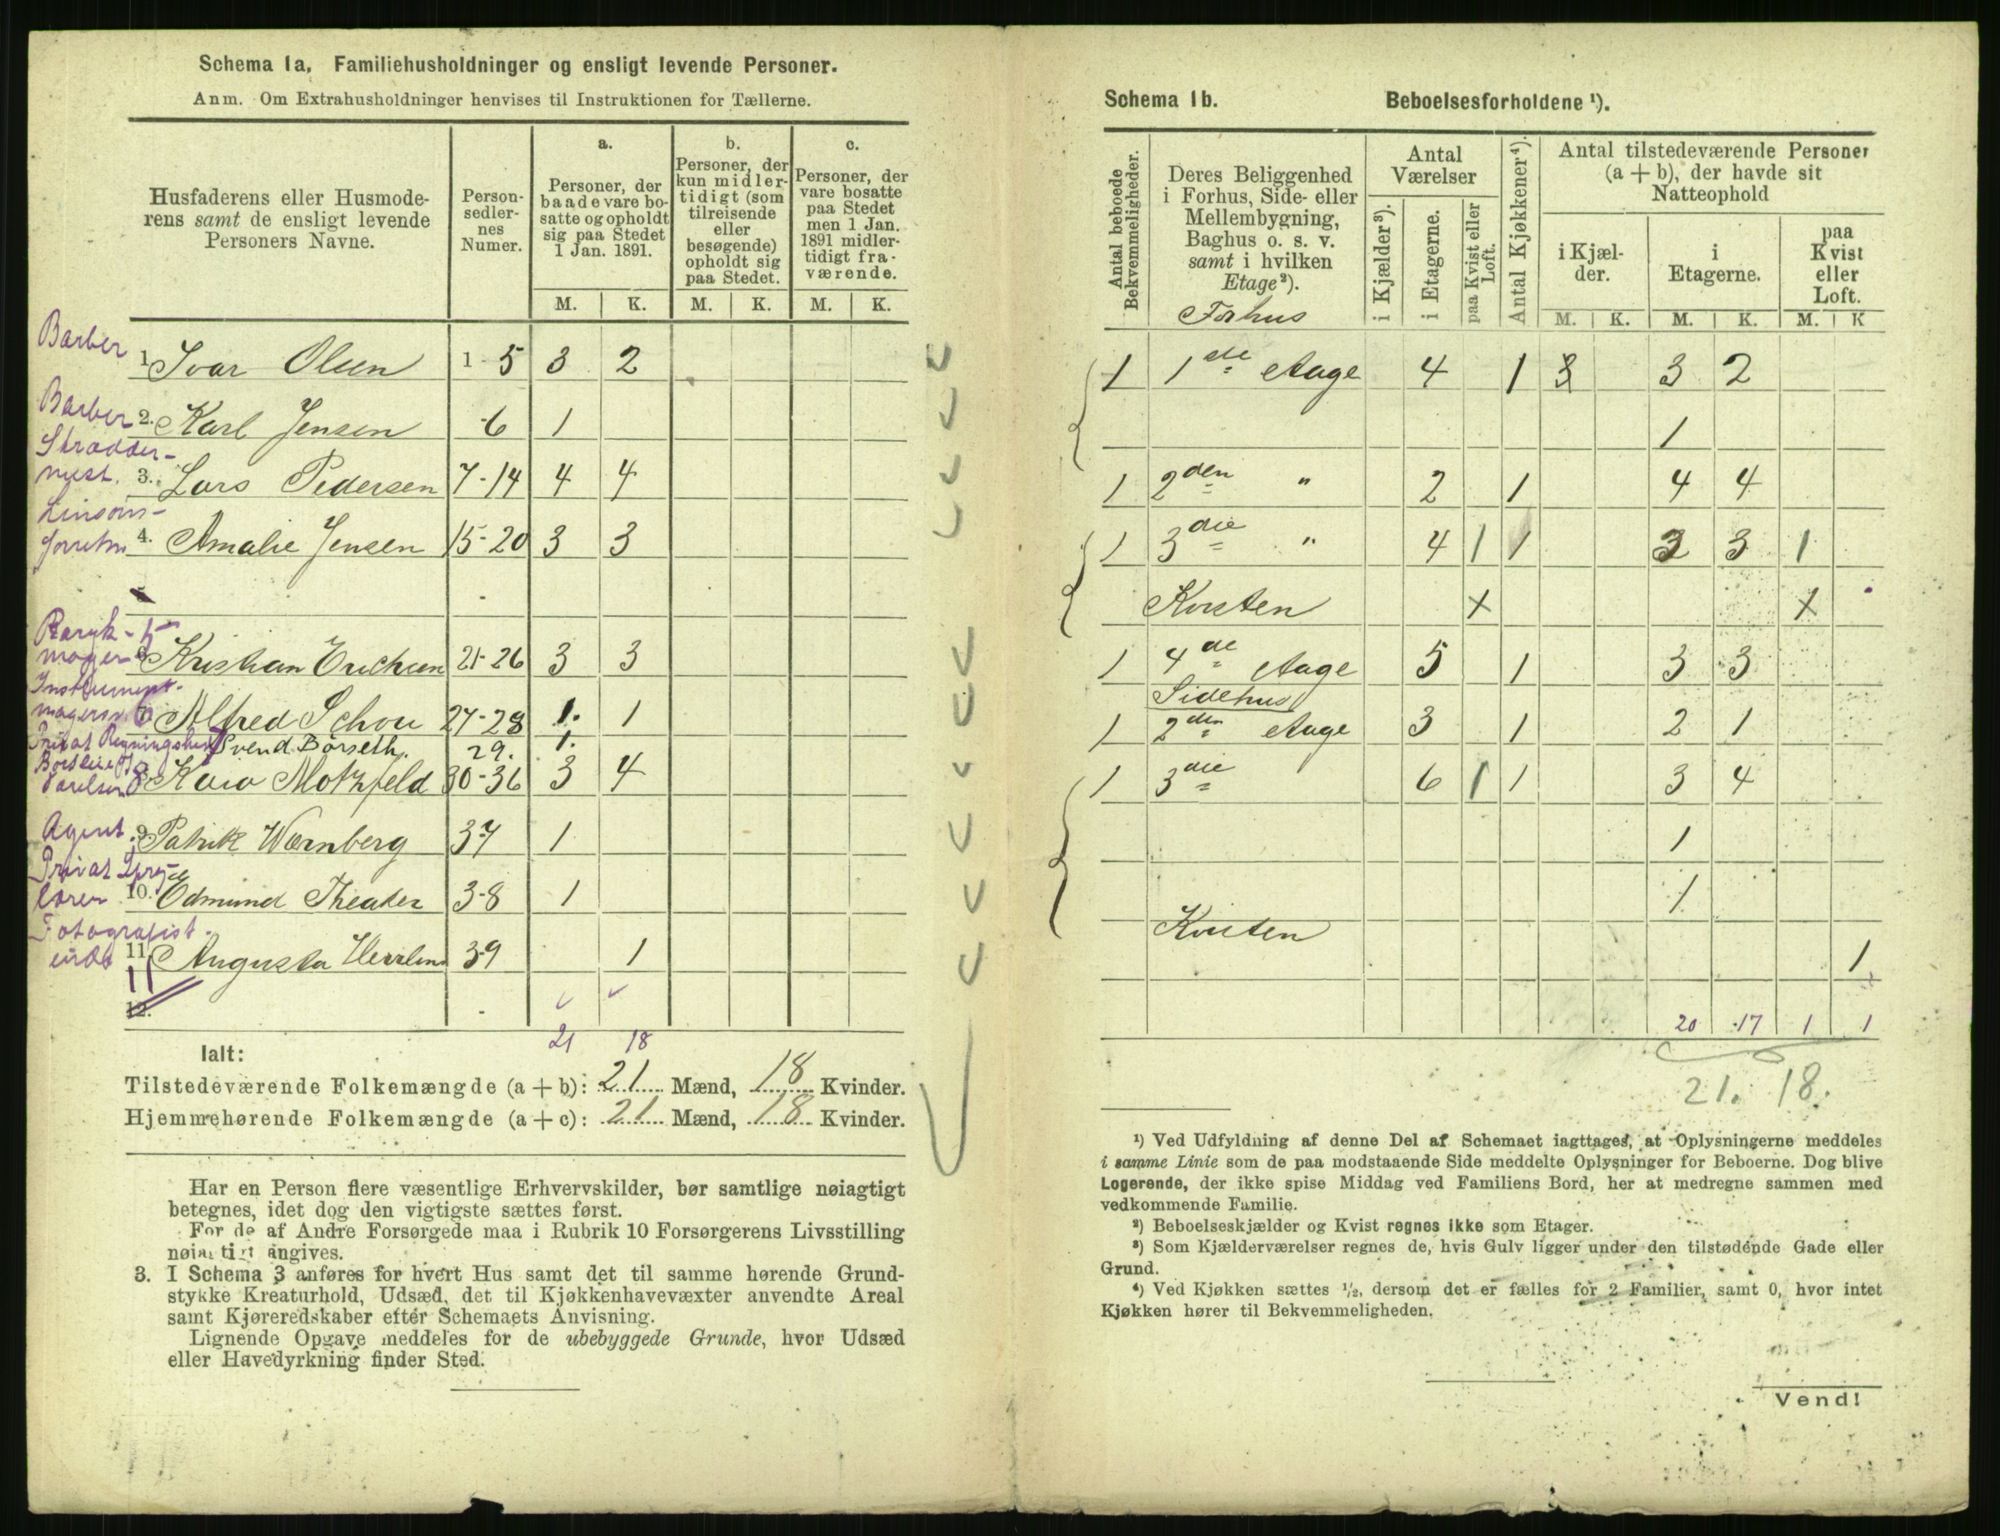 Schema 1a. Familiehusholdninger og ensligt levende Personer.
Anm. Om Extrahusholdninger henvises til Instruktionen for Tællerne.
Husfaderens eller Husmoderens samt de ensligt levende Personers Navne.
Personsedlernes Numer.
a. Personer, der baade vare bosatte og opholdt sig paa Stedet 1 Jan. 1891.
b. Personer, der kun midlertidigt (som tilreisende eller besøgende) opholdt sig paa Stedet.
c. Personer, der vare bosatte paa Stedet men 1 Jan. 1891 midlertidigt fraværende.
M. K. M. K. M. K.
Barber 1 Ivar Olsen 1-5 3 2
Barber 2. Karl Jensen -6 1
3. Lars Pedersen 7-14 4 4
4. Amalie Jensen 15-20 3 3
Paryk-mager 5 6 Kristian Erichsen 21-26 3 3
Instrumentmager 6 Alfred Schou 27-28 1. 1
Privat 7 Svend Børseth. 29. 1.
8 Kaia Motzfeld 30-36 3 4
Agent. 9 Patrik Wærnberg 37 1
Privat 10. Edmund Theater 38 1
Fotografist. 11 Augusta 39 1
11
12.
21 18
Ialt:
Tilstedeværende Folkemængde (a + b): 21 Mænd, 18 Kvinder.
Hjemmehørende Folkemængde (a + c): 21 Mænd, 18 Kvinder.
Har en Person flere væsentlige Erhvervskilder, bør samtlige nøiagtigt
betegnes, idet dog den vigtigste sættes først.
For de af Andre Forsørgede maa i Rubrik 10 Forsørgerens Livsstilling
nøiagtigt angives.
3. I Schema 3 anføres for hvert Hus samt det til samme hørende Grund-
stykke Kreaturhold, Udsæd, det til Kjøkkenhavevæxter anvendte Areal
samt Kjøreredskaber efter Schemaets Anvisning.
Lignende Opgave meddeles for de ubebyggede Grunde, hvor Udsæd
eller Havedyrkning finder Sted.
Schema 1b. Beboelsesforholdene ¹).
Antal beboede Bekvemmeligheder.
Deres Beliggenhed i Forhus, Side- eller Mellembygning, Baghus o. s. v. samt i hvilken Etage²).
Antal Værelser
i Kjælder³).
i Etagerne.
paa Kvist eller Loft.
Antal Kjøkkener⁴).
Antal tilstedeværende Personer (a + b), der havde sit Natteophold
i Kjælder.
i Etagerne.
paa Kvist eller Loft.
M. K. M. K. M. K
Forhus
1 1de Etage 4 1 3 3 2
1
1 2den " 2 1 4 4
1 3die " 4 1 1 3 3 1
Kvisten x x
1 4de Etage 5 1 3 3
Sidehus
1 2den Etage 3 1 2 1
1 3die " 6 1 1 3 4
1
1
Kvisten
1
20 17 1 1
21. 18.
¹) Ved Udfyldning af denne Del af Schemaet iagttages, at Oplysningerne meddeles
i samme Linie som de paa modstaaende Side meddelte Oplysninger for Beboerne. Dog blive
Logerende, der ikke spise Middag ved Familiens Bord, her at medregne sammen med
vedkommende Familie.
²) Beboelseskjælder og Kvist regnes ikke som Etager.
³) Som Kjælderværelser regnes de, hvis Gulv ligger under den tilstødende Gade eller
Grund.
⁴) Ved Kjøkken sættes ½, dersom det er fælles for 2 Familier, samt 0, hvor intet
Kjøkken hører til Bekvemmeligheden.
Vend!